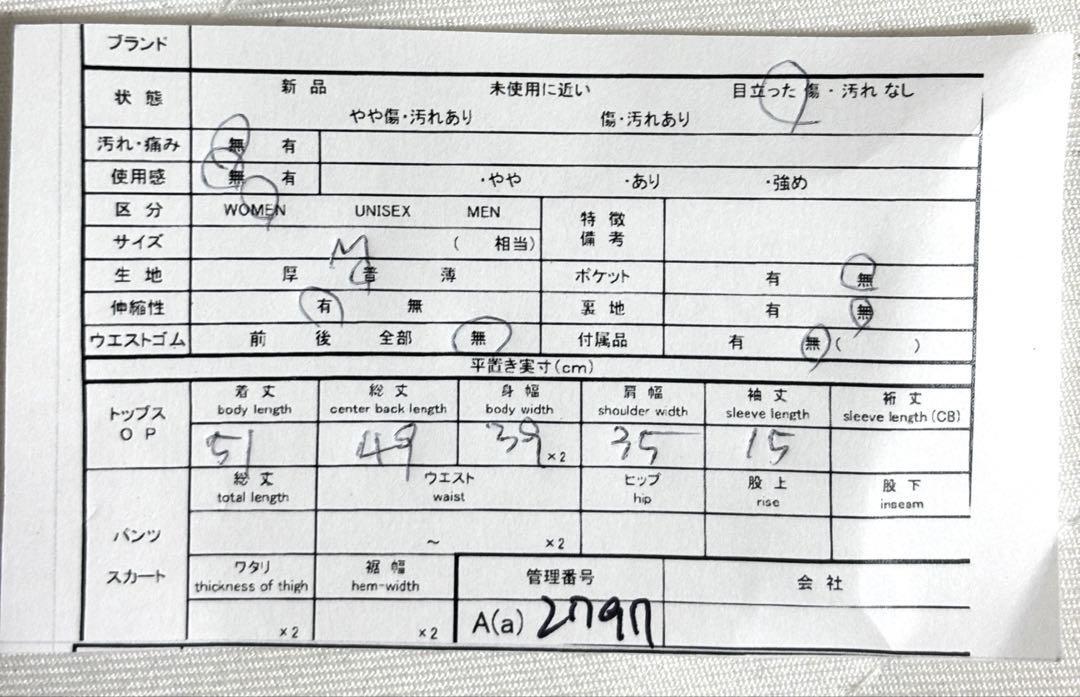 ブランド
状態 新品 未使用に近い 目立った傷・汚れなし
やや傷・汚れあり 傷・汚れあり
汚れ・痛み 無 有
使用感 無 有 ・やや ・あり ・強め
区分 WOMEN UNISEX MEN 特徴
備考
サイズ M ( 相当)
生地 厚 普 薄 ポケット 有 無
伸縮性 有 無 裏地 有 無
ウエストゴム 前 後 全部 無 付属品 有 無 ( )
平置き実寸(cm)
トップス
OP
着丈 総丈 身幅 肩幅 袖丈 裄丈
body length center back length body width shoulder width sleeve length sleeve length (CB)
51 49 39 ×2 35 15
総丈 ウエスト ヒップ 股上 股下
total length waist hip rise inseam
パンツ ~ ×2
スカート
ワタリ 裾幅 管理番号 会社
thickness of thigh hem-width
×2 ×2 A(a) 2797